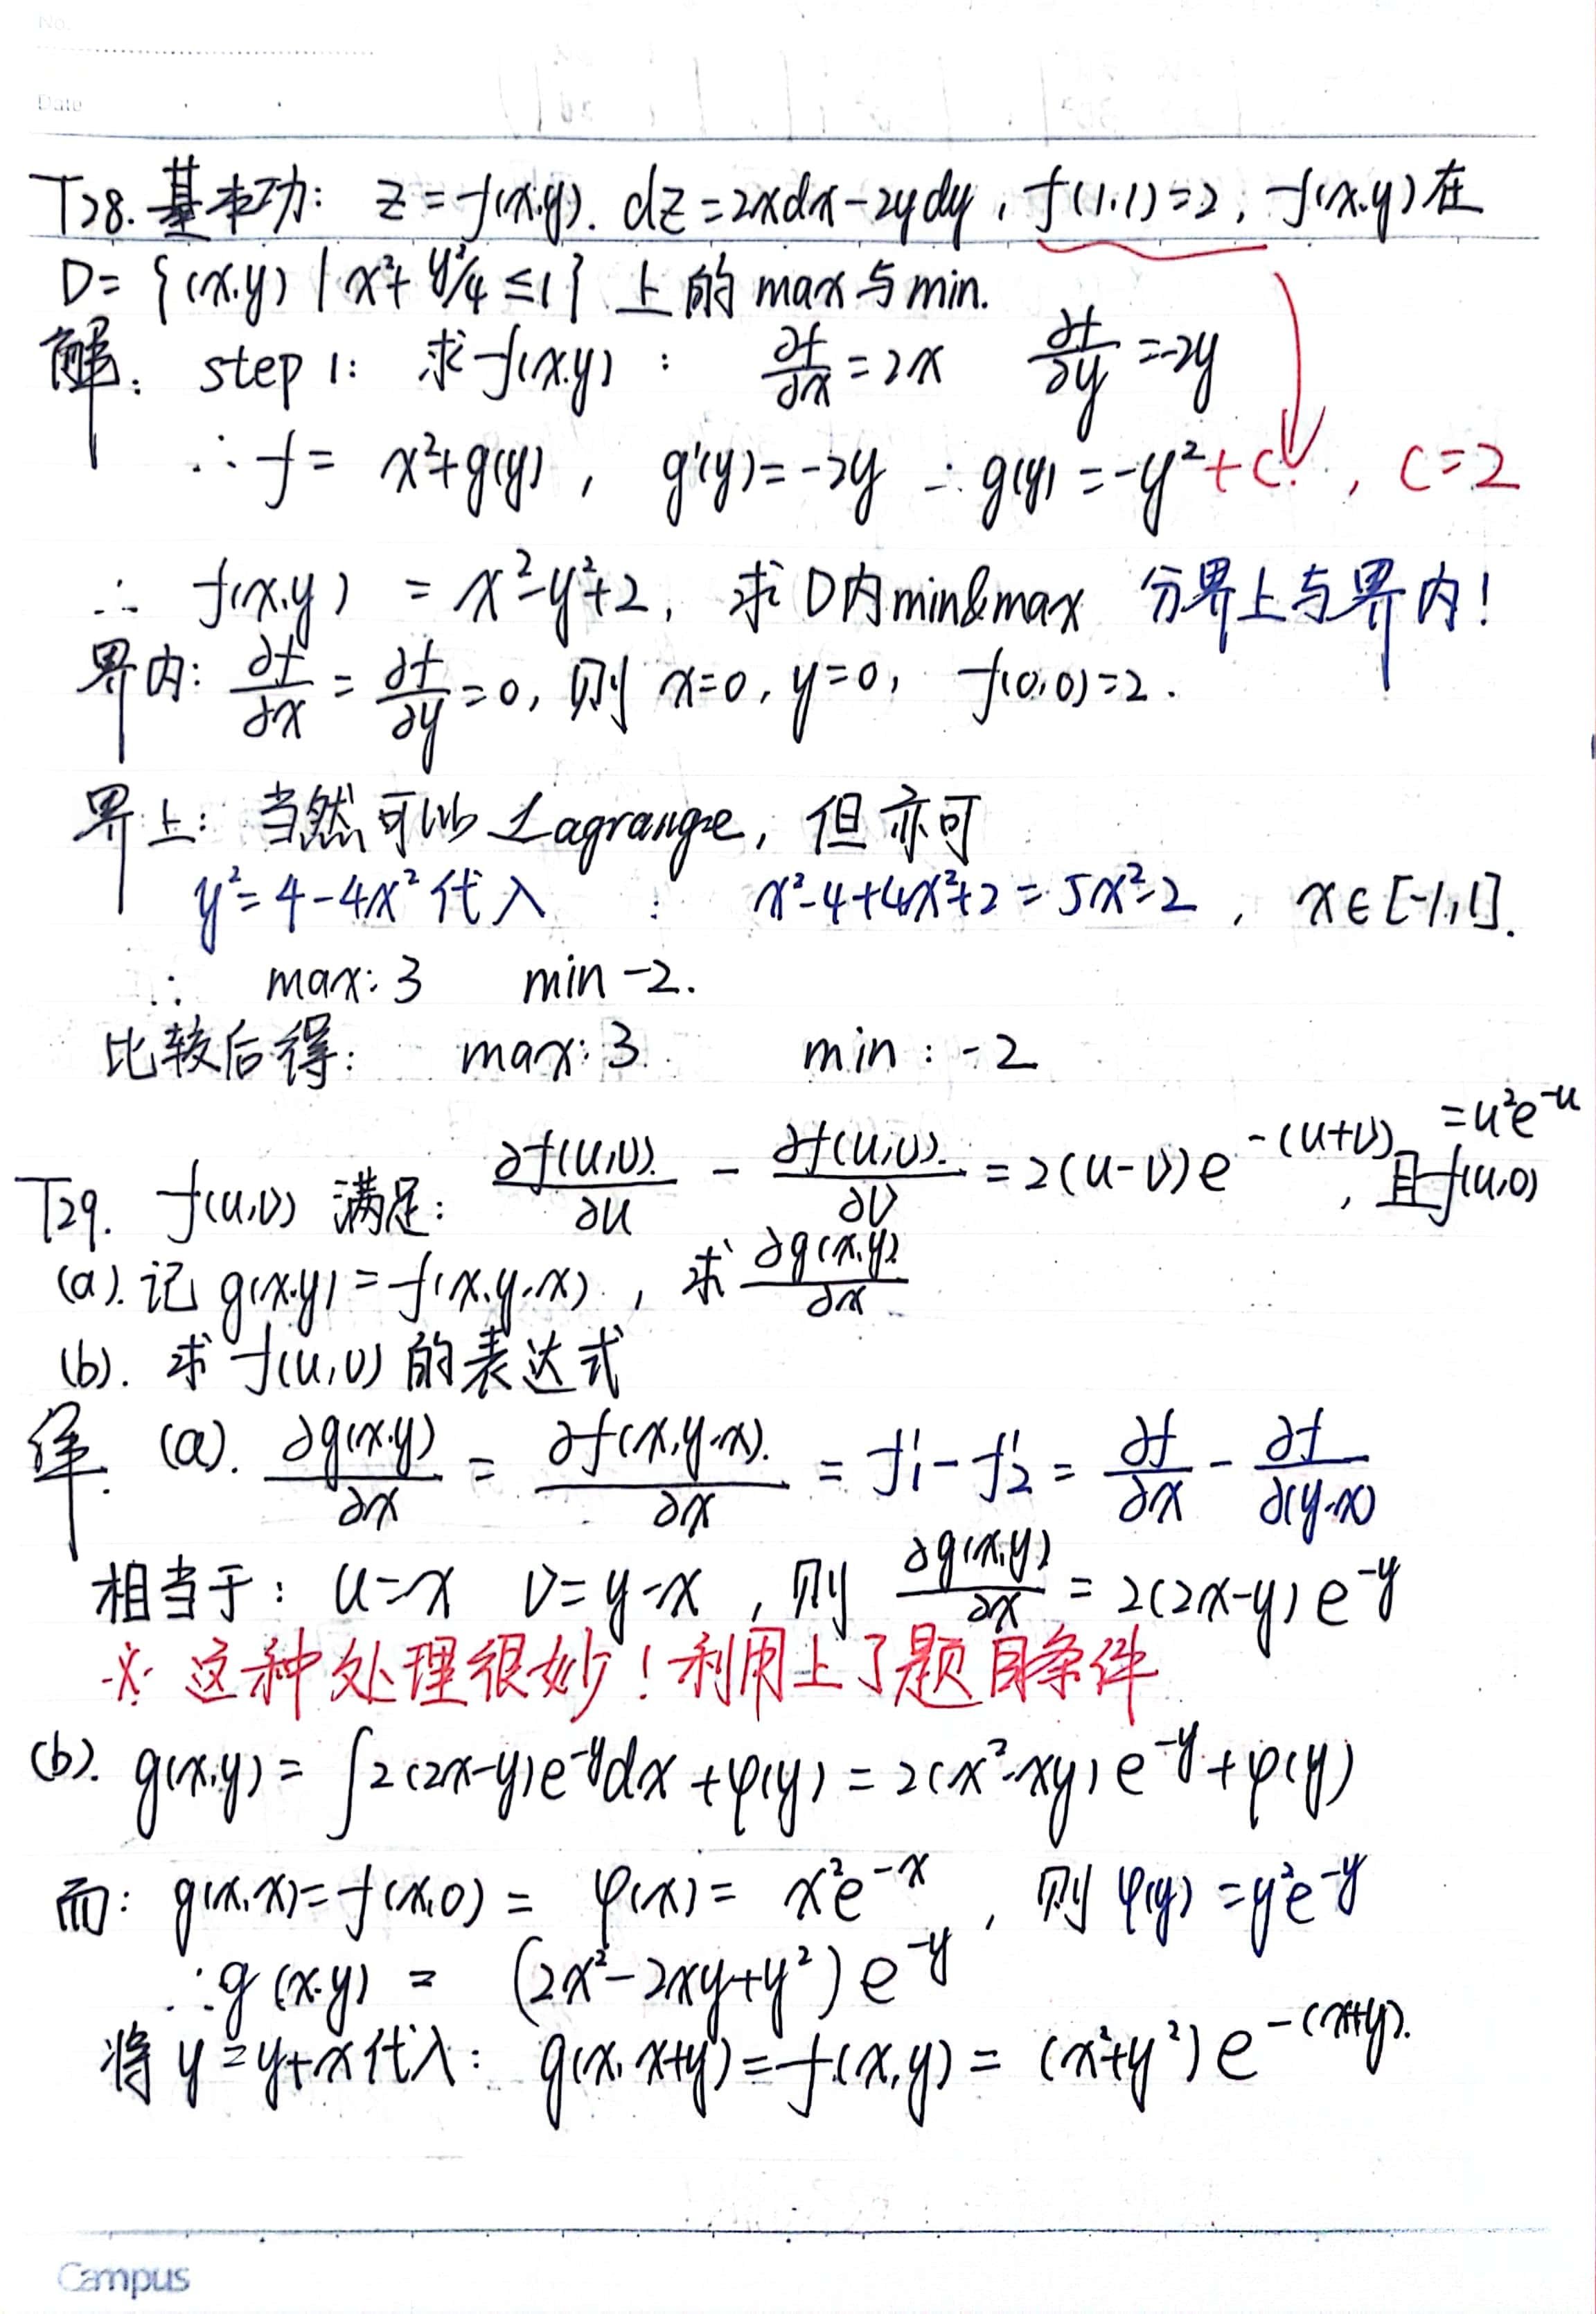 No.
Date
T28. 基本功: z=f(x,y). dz=2xdx-2ydy, f(1,1)=2, f(x,y)在
D={(x,y)|x²+y²/4≤1}上的max与min.
解: step 1: 求f(x,y): ∂f/∂x=2x ∂f/∂y=-2y
∴ f= x²+g(y), g'(y)=-2y ∴ g(y)=-y²+C, C=2
∴ f(x,y) = x²-y²+2, 求D内min&max 分界上与界内!
界内: ∂f/∂x=∂f/∂y=0, 则 x=0, y=0, f(0,0)=2.
界上: 当然可以Lagrange, 但亦可
y²=4-4x²代入: x²-4+4x²+2=5x²-2, x∈[-1,1].
∴ max: 3 min -2.
比较后得: max: 3 min: -2
T29. f(u,v)满足: ∂f(u,v)/∂u - ∂f(u,v)/∂v = 2(u-v)e^{-(u+v)}, 且f(u,0)=u²e^{-u}
(a). 记g(x,y)=f(x,y-x), 求∂g(x,y)/∂x
(b). 求f(u,v)的表达式
解: (a). ∂g(x,y)/∂x = ∂f(x,y-x)/∂x = f'₁-f'₂ = ∂f/∂x - ∂f/∂(y-x)
相当于: u=x v=y-x, 则 ∂g(x,y)/∂x = 2(2x-y)e^{-y}
※ 这种处理很妙!利用上了题目条件
(b). g(x,y)=∫2(2x-y)e^{-y}dx+φ(y)=2(x²-xy)e^{-y}+φ(y)
而: g(x,x)=f(x,0)= φ(x)= x²e^{-x}, 则 φ(y)=y²e^{-y}
∴ g(x,y) = (2x²-2xy+y²)e^{-y}
将y=y+x代入: g(x,x+y)=f(x,y)= (x²+y²)e^{-(x+y)}.
Campus